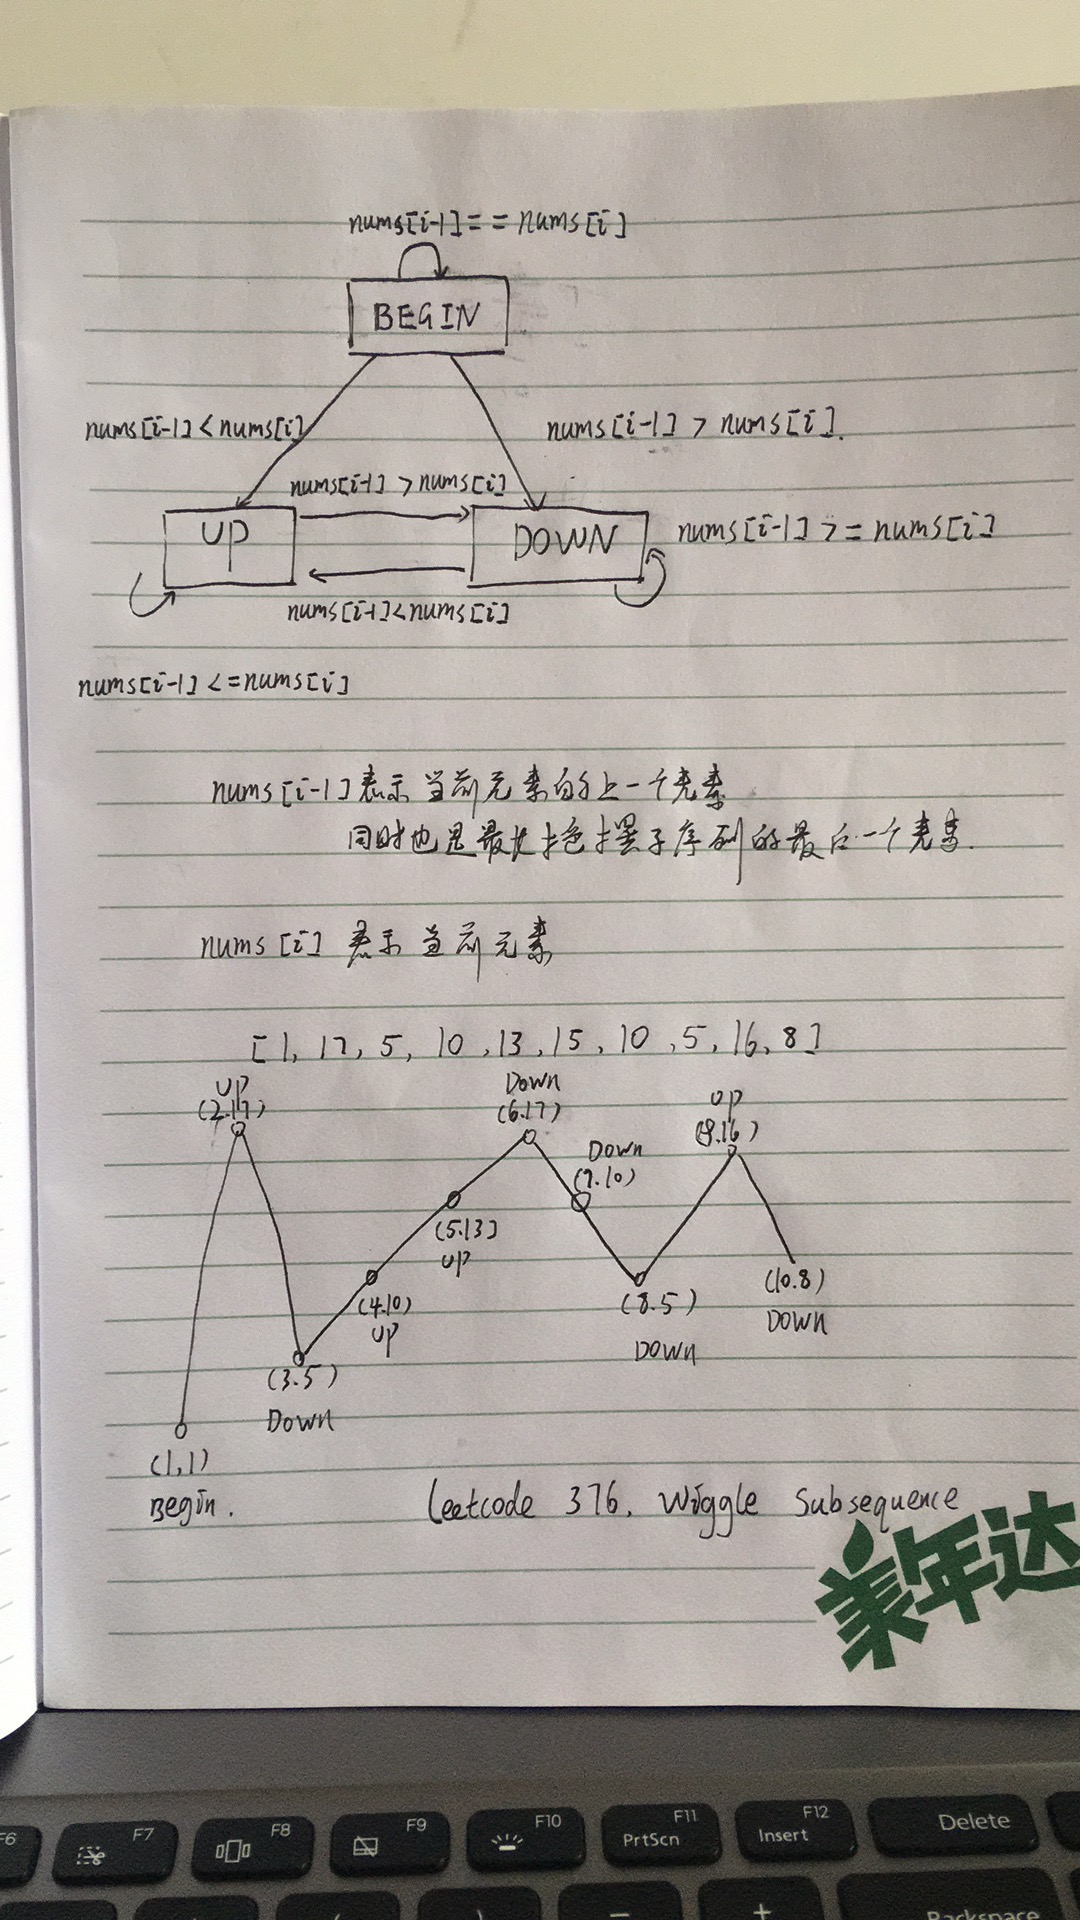 nums[i-1]==nums[i]
BEGIN
nums[i-1]<nums[i]
nums[i-1]>nums[i].
nums[i-1]>nums[i]
UP
DOWN
nums[i-1]>=nums[i]
nums[i-1]<nums[i]
nums[i-1]<=nums[i]
nums[i-1]表示当前元素的上一个元素
同时也是最长摇摆子序列的最后一个元素.
nums[i] 表示当前元素
[1, 17, 5, 10, 13, 15, 10, 5, 16, 8]
UP
(2.17)
Down
(6.17)
Down
(7.10)
UP
(9.16)
(5.13)
UP
(4.10)
UP
(3.5)
Down
(8.5)
DOWN
(10.8)
DOWN
(1,1)
Begin.
Leetcode 376. Wiggle Subsequence
美年达
F6
F7
F8
F9
F10
F11
PrtScn
F12
Insert
Delete
Backspace